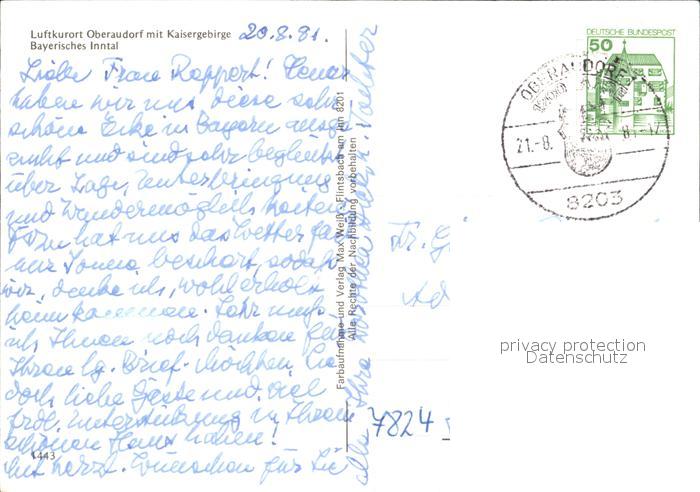 Luftkurort Oberaudorf mit Kaisergebirge
Bayerisches Inntal
20.8.81.
Liebe Frau Rappert! Heuer
haben wir uns diese sehr
schöne Ecke in Bayern ausge-
sucht und sind sehr begeistert
über Lage, Unterbringung
und Wandermöglichkeiten.
Dazu hat uns das Wetter
nur Sonne beschert, sodaß
wir, denke ich, wohl erholt
heim kommen. Sehr muß
ich Ihnen noch danken für
Ihren lg. Brief. Möchten Sie
doch liebe Gäste und viel
frdl. Unterstützung in Ihrem
schönen Haus haben!
Mit herzl. Wünschen für Sie
alle Ihre
Tochter
1443
Farbaufnahme und Verlag Max Weiß · Flintsbach am Inn 8201
Alle Rechte der Nachbildung vorbehalten
DEUTSCHE BUNDESPOST
50
OBERAUDORF
21.-8. 81.-17
8203
Fr. G
Ad
7824
privacy protection
Datenschutz